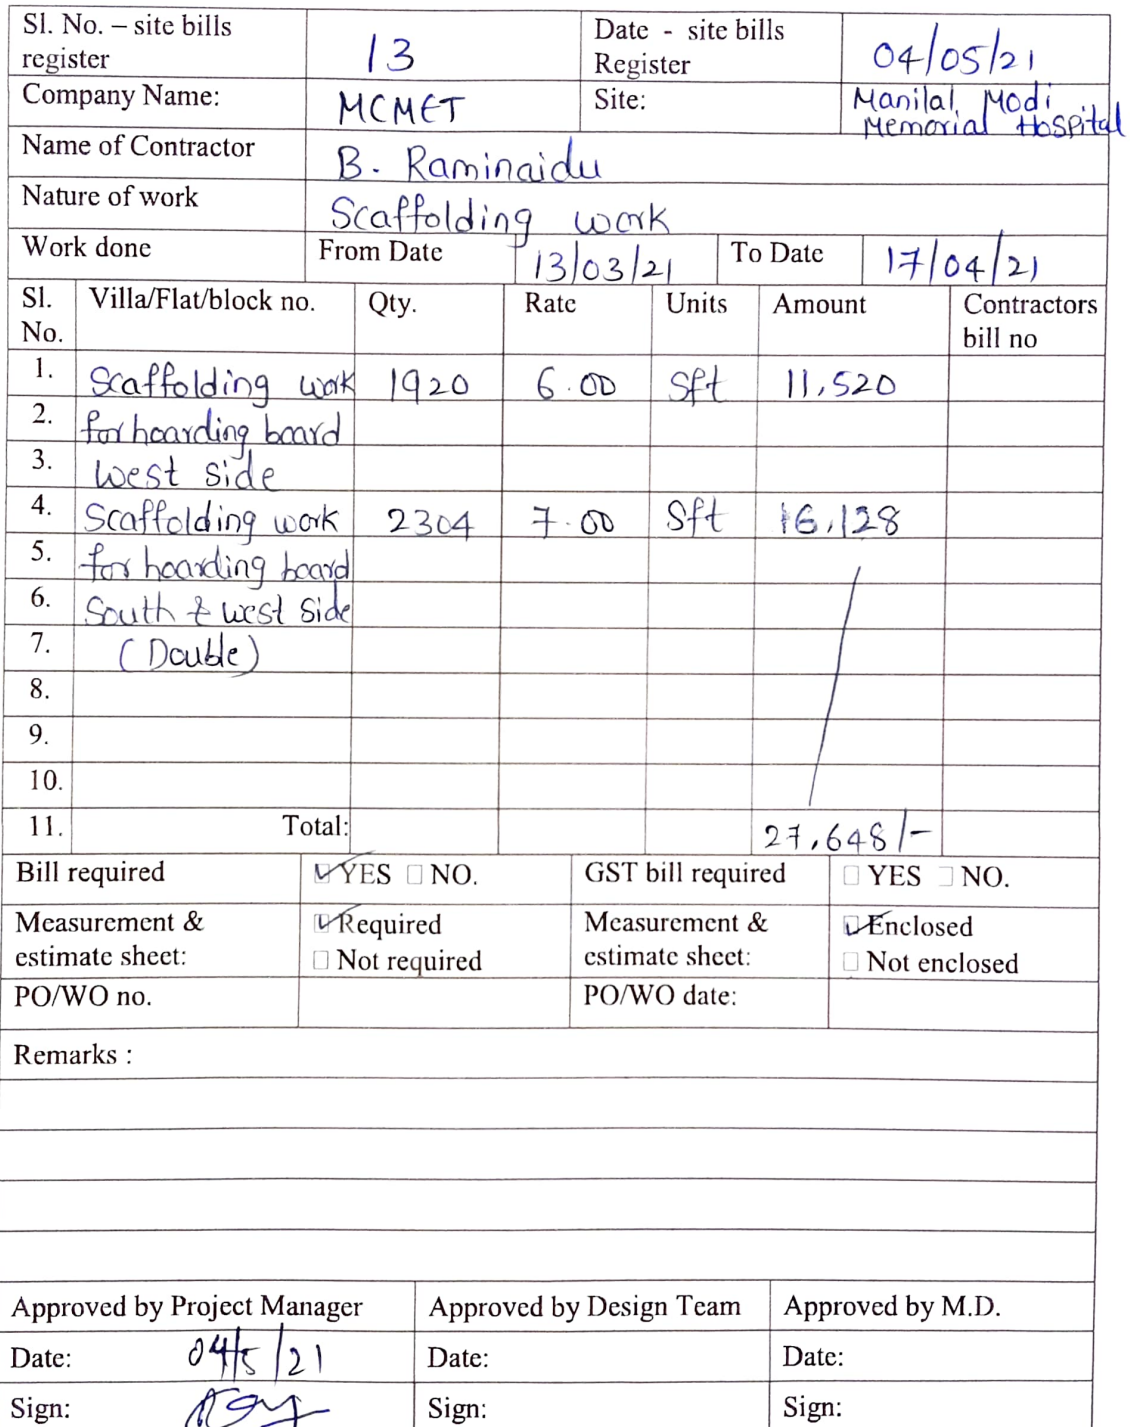 Sl. No. – site bills register 13 Date - site bills Register 04/05/21
Company Name: MCMET Site: Manilal Modi Memorial Hospital
Name of Contractor B. Raminaidu
Nature of work Scaffolding work
Work done From Date 13/03/21 To Date 17/04/21
Sl. No. Villa/Flat/block no. Qty. Rate Units Amount Contractors bill no
1. Scaffolding work 1920 6.00 Sft 11,520
2. for hoarding board
3. west side
4. Scaffolding work 2304 7.00 Sft 16,128
5. for hoarding board
6. South & west side
7. (Double)
8.
9.
10.
11. Total: 27,648/-
Bill required YES NO. GST bill required YES NO.
Measurement & estimate sheet: Required Not required Measurement & estimate sheet: Enclosed Not enclosed
PO/WO no. PO/WO date:
Remarks :
Approved by Project Manager Approved by Design Team Approved by M.D.
Date: 04/5/21 Date: Date:
Sign: Sign: Sign: